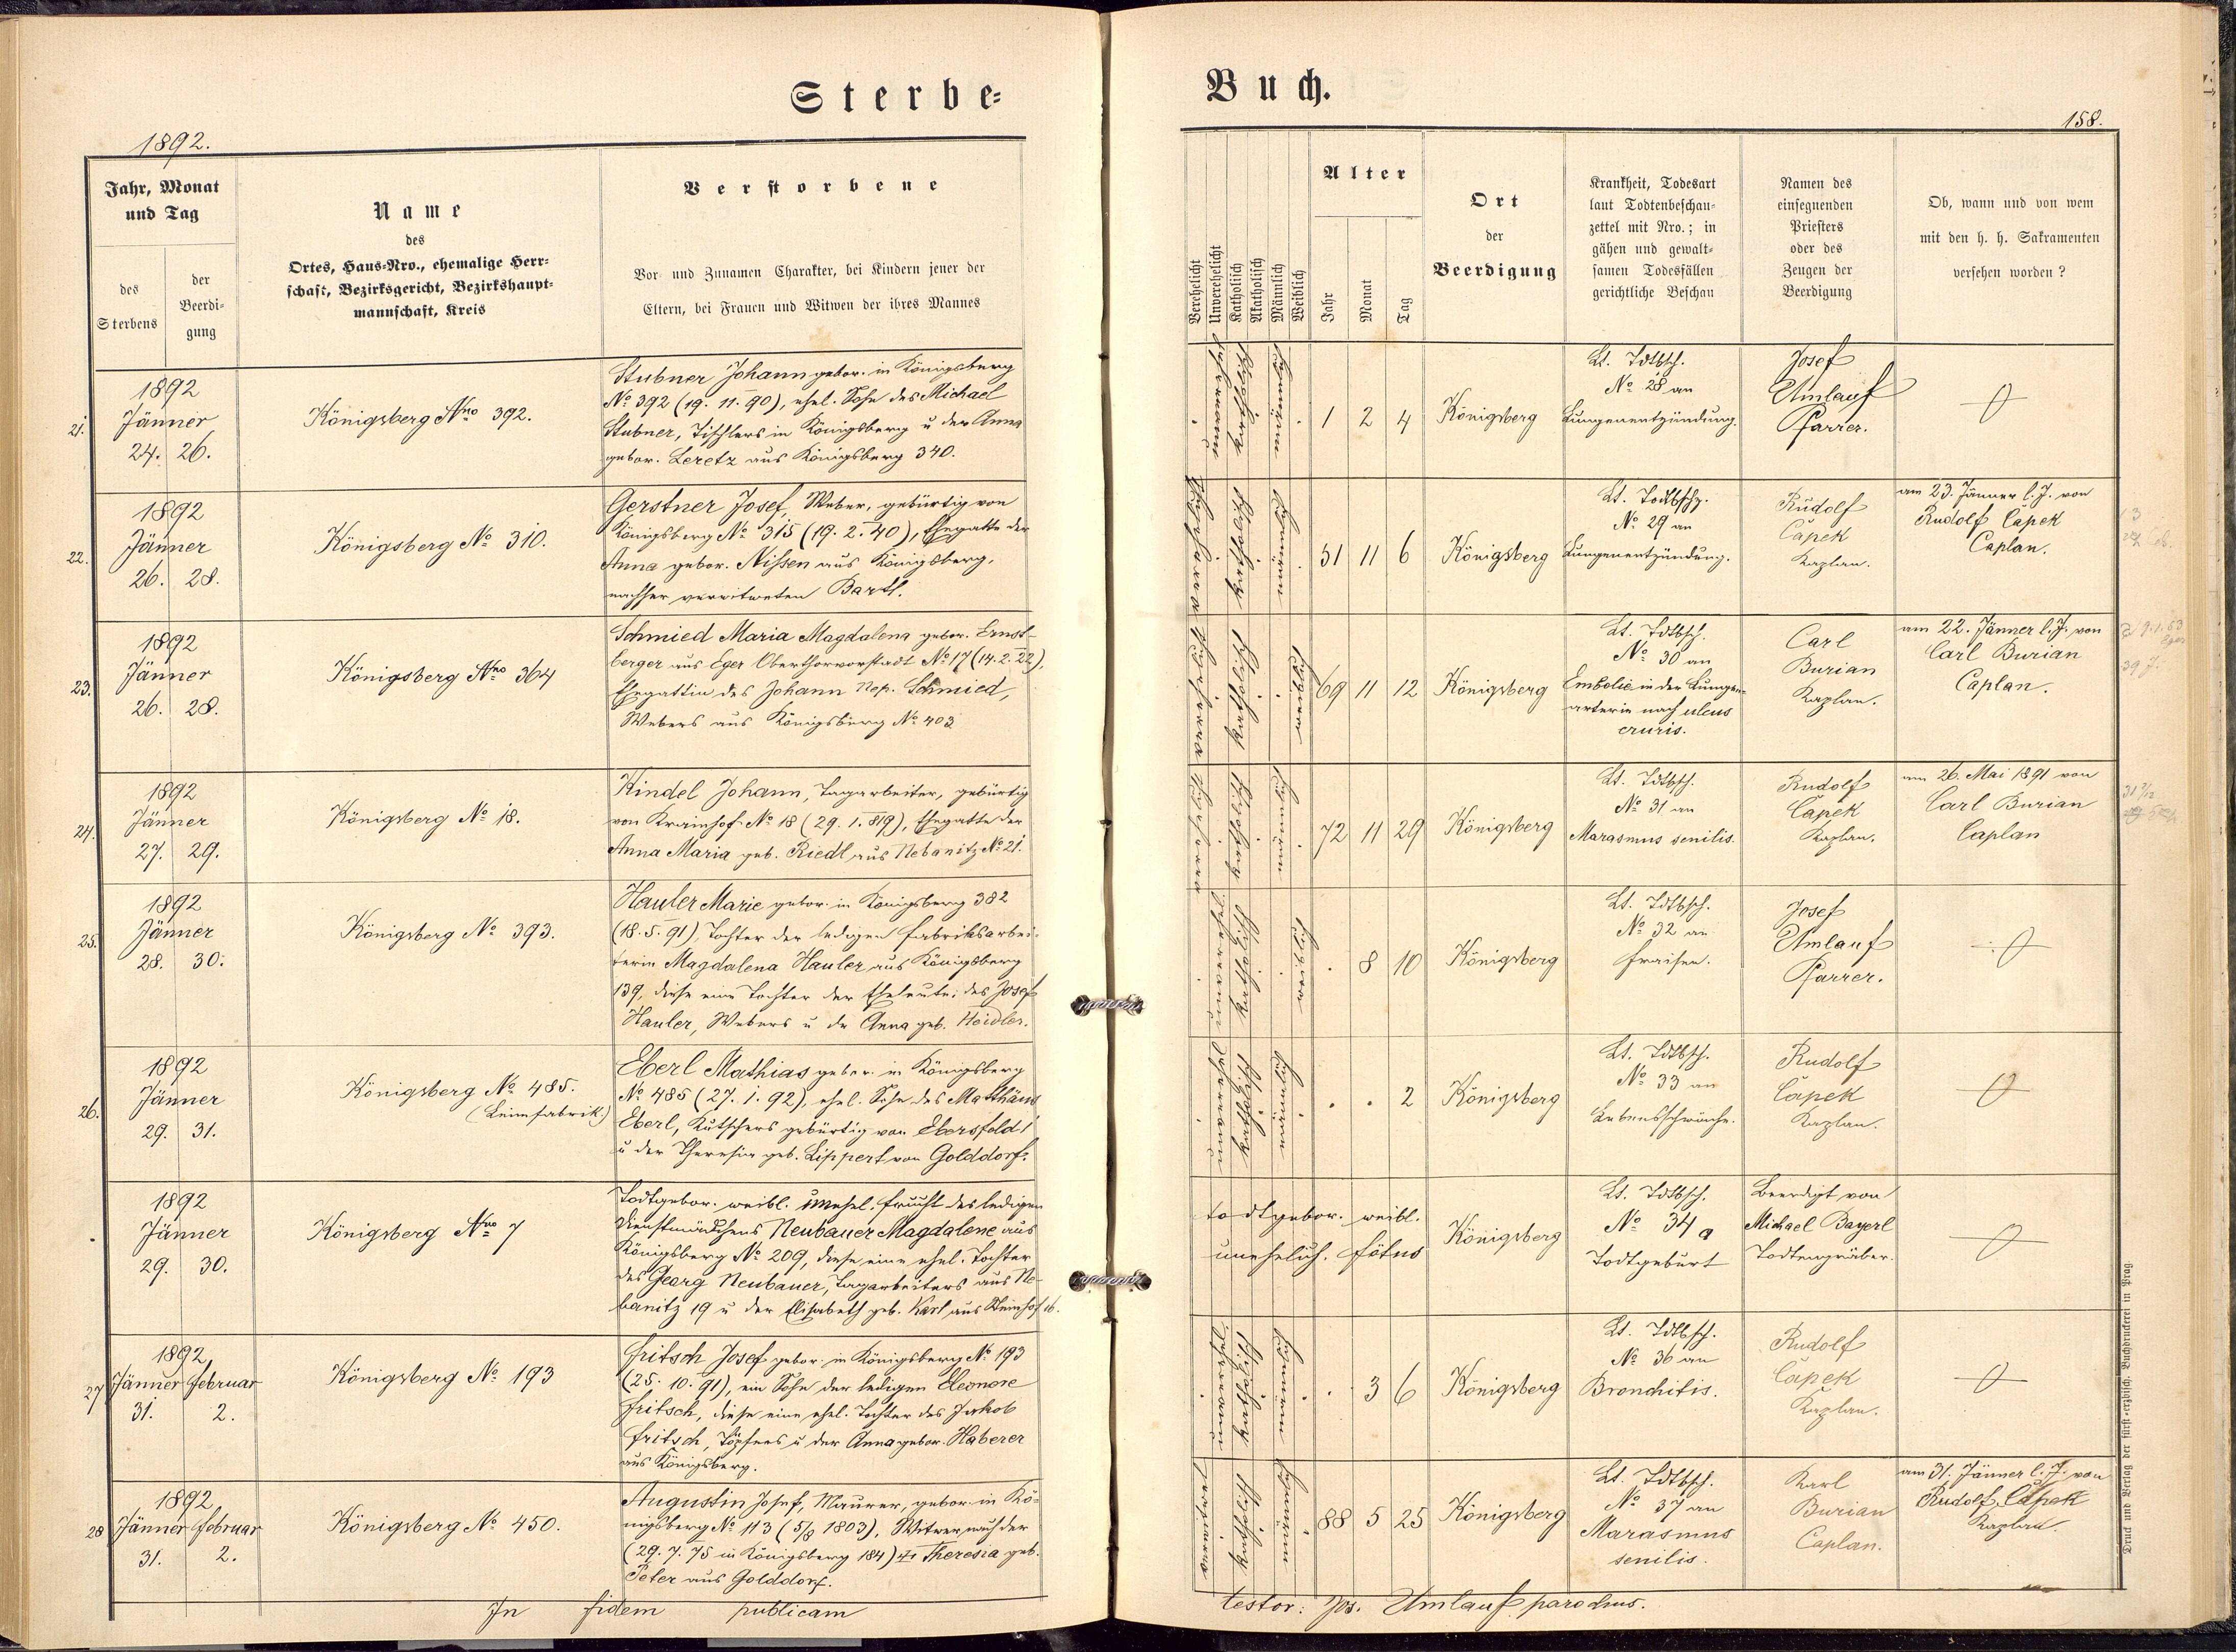 Sterbe-
1892.
Jahr, Monat
und Tag
des
Sterbens
der
Beerdi-
gung
Name
des
Ortes, Haus-Nro., ehemalige Herr-
schaft, Bezirksgericht, Bezirkshaupt-
mannschaft, Kreis
Verstorbene
Vor- und Zunamen Charakter, bei Kindern jener der
Eltern, bei Frauen und Witwen der ihres Mannes
21.
1892
Jänner
24. 26.
Königsberg Nro 392.
Stubner Johann gebor. in Königsberg
No 392 (19. 11. 90), ehel. Sohn des Michael
Stubner, Tischlers in Königsberg u der Anna
gebor. Leretz aus Königsberg 340.
22.
1892
Jänner
26. 28.
Königsberg No 310.
Gerstner Josef, Weber, gebürtig von
Königsberg No 315 (19. 2. 40), Ehegatte der
Anna gebor. Nissen aus Königsberg,
nachher verwitweten Bartl.
23.
1892
Jänner
26. 28.
Königsberg Nro 364
Schmied Maria Magdalena gebor. Ernst-
berger aus Eger Oberthorvorstadt No 17 (14. 2. 22),
Ehegattin des Johann Nep. Schmied,
Webers aus Königsberg No 403
24.
1892
Jänner
27. 29.
Königsberg No 18.
Kindel Johann, Tagarbeiter, gebürtig
von Krainhof No 18 (29. 1. 819), Ehegatte der
Anna Maria geb. Riedl aus Nebanitz No 21.
25.
1892
Jänner
28. 30.
Königsberg No 393.
Hauler Marie gebor. in Königsberg 382
(18. 5. 91), Tochter der ledigen Fabriksarbei-
terin Magdalena Hauler aus Königsberg
139, diese eine Tochter der Eheleute: des Josef
Hauler, Webers u der Anna geb. Heidler.
26.
1892
Jänner
29. 31.
Königsberg No 485.
(Leimfabrik.)
Eberl Mathias gebor. in Königsberg
No 485 (27. 1. 92), ehel. Sohn des Matthäus
Eberl, Kutschers gebürtig von Ebersfeld 1
u der Theresia geb. Lippert von Golddorf.
1892
Jänner
29. 30.
Königsberg Nro 7
Todtgebor. weibl. unehel. Frucht des ledigen
Dienstmädchens Neubauer Magdalene aus
Königsberg No 209, diese eine ehel. Tochter
des Georg Neubauer, Tagarbeiters aus Ne-
banitz 19 u der Elisabeth geb. Karl aus Steinhof 16.
27
1892
Jänner Februar
31. 2.
Königsberg No 193
Fritsch Josef gebor. in Königsberg No 193
(25. 10. 91), ein Sohn der ledigen Eleonore
Fritsch, diese eine ehel. Tochter des Jakob
Fritsch, Töpfers u der Anna gebor. Haberer
aus Königsberg.
28
1892
Jänner Februar
31. 2.
Königsberg No 450.
Augustin Josef, Maurer, gebor. in Kö-
nigsberg No 113 (5/8 1803), Witwer nach der
(29. 7. 75 in Königsberg 184) Theresia geb.
Peter aus Golddorf.
In fidem publicam
Buch.
158.
Verehelicht
Unverehelicht
Katholisch
Akatholisch
Männlich
Weiblich
Alter
Jahr
Monat
Tag
Ort
der
Beerdigung
Krankheit, Todesart
laut Todtenbeschau-
zettel mit Nro.; in
gähen und gewalt-
samen Todesfällen
gerichtliche Beschau
Namen des
einsegnenden
Priesters
oder des
Zeugen der
Beerdigung
Ob, wann und von wem
mit den h. h. Sakramenten
versehen worden?
katholisch
männlich
1 2 4
Königsberg
Lt. Tdtbsch.
No 28 an
Lungenentzündung.
Josef
Umlauf
Pfarrer.
katholisch
männlich
51 11 6
Königsberg
Lt. Todtbschz.
No 29 an
Lungenentzündung.
Rudolf
Čapek
Kaplan.
am 23. Jänner l. J. von
Rudolf Čapek
Caplan.
katholisch
69 11 12
Königsberg
Lt. Tdtbsch.
No 30 an
Embolie in der Lungen-
arterie nach ulcus
cruris.
Carl
Burian
Kaplan.
am 22. Jänner l. J. von
Carl Burian
Caplan.
katholisch
männlich
72 11 29
Königsberg
Lt. Tdtbsch.
No 31 an
Marasmus senilis.
Rudolf
Čapek
Kaplan.
am 26. Mai 1891 von
Carl Burian
Caplan
katholisch
weiblich
. 8 10
Königsberg
Lt. Tdtbsch.
No 32 an
Fraisen.
Josef
Umlauf
Pfarrer.
katholisch
männlich
. . 2
Königsberg
Lt. Tdtbsch.
No 33 an
Lebensschwäche.
Rudolf
Čapek
Kaplan.
todtgebor. weibl.
unehelich. Fötus
Königsberg
Lt. Tdtbsch.
No 34 a
Todtgeburt
Beerdigt von
Michael Bayerl
Todtengräber.
katholisch
männlich
. 3 6
Königsberg
Lt. Tdtbsch.
No 36 an
Bronchitis.
Rudolf
Čapek
Kaplan.
katholisch
männlich
88 5 25
Königsberg
Lt. Tdtbsch.
No 37 an
Marasmus
senilis.
Karl
Burian
Caplan.
am 31. Jänner l. J. von
Rudolf Čapek
Kaplan.
testor: Jos. Umlauf parochus.
Druck und Verlag der fürst-erzbisch. Buchdruckerei in Prag.